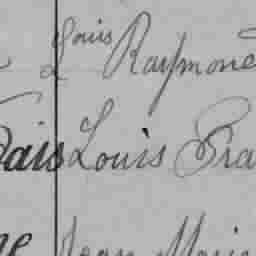 Louis Raymond
ais Louis Fra
ne Jean Marie